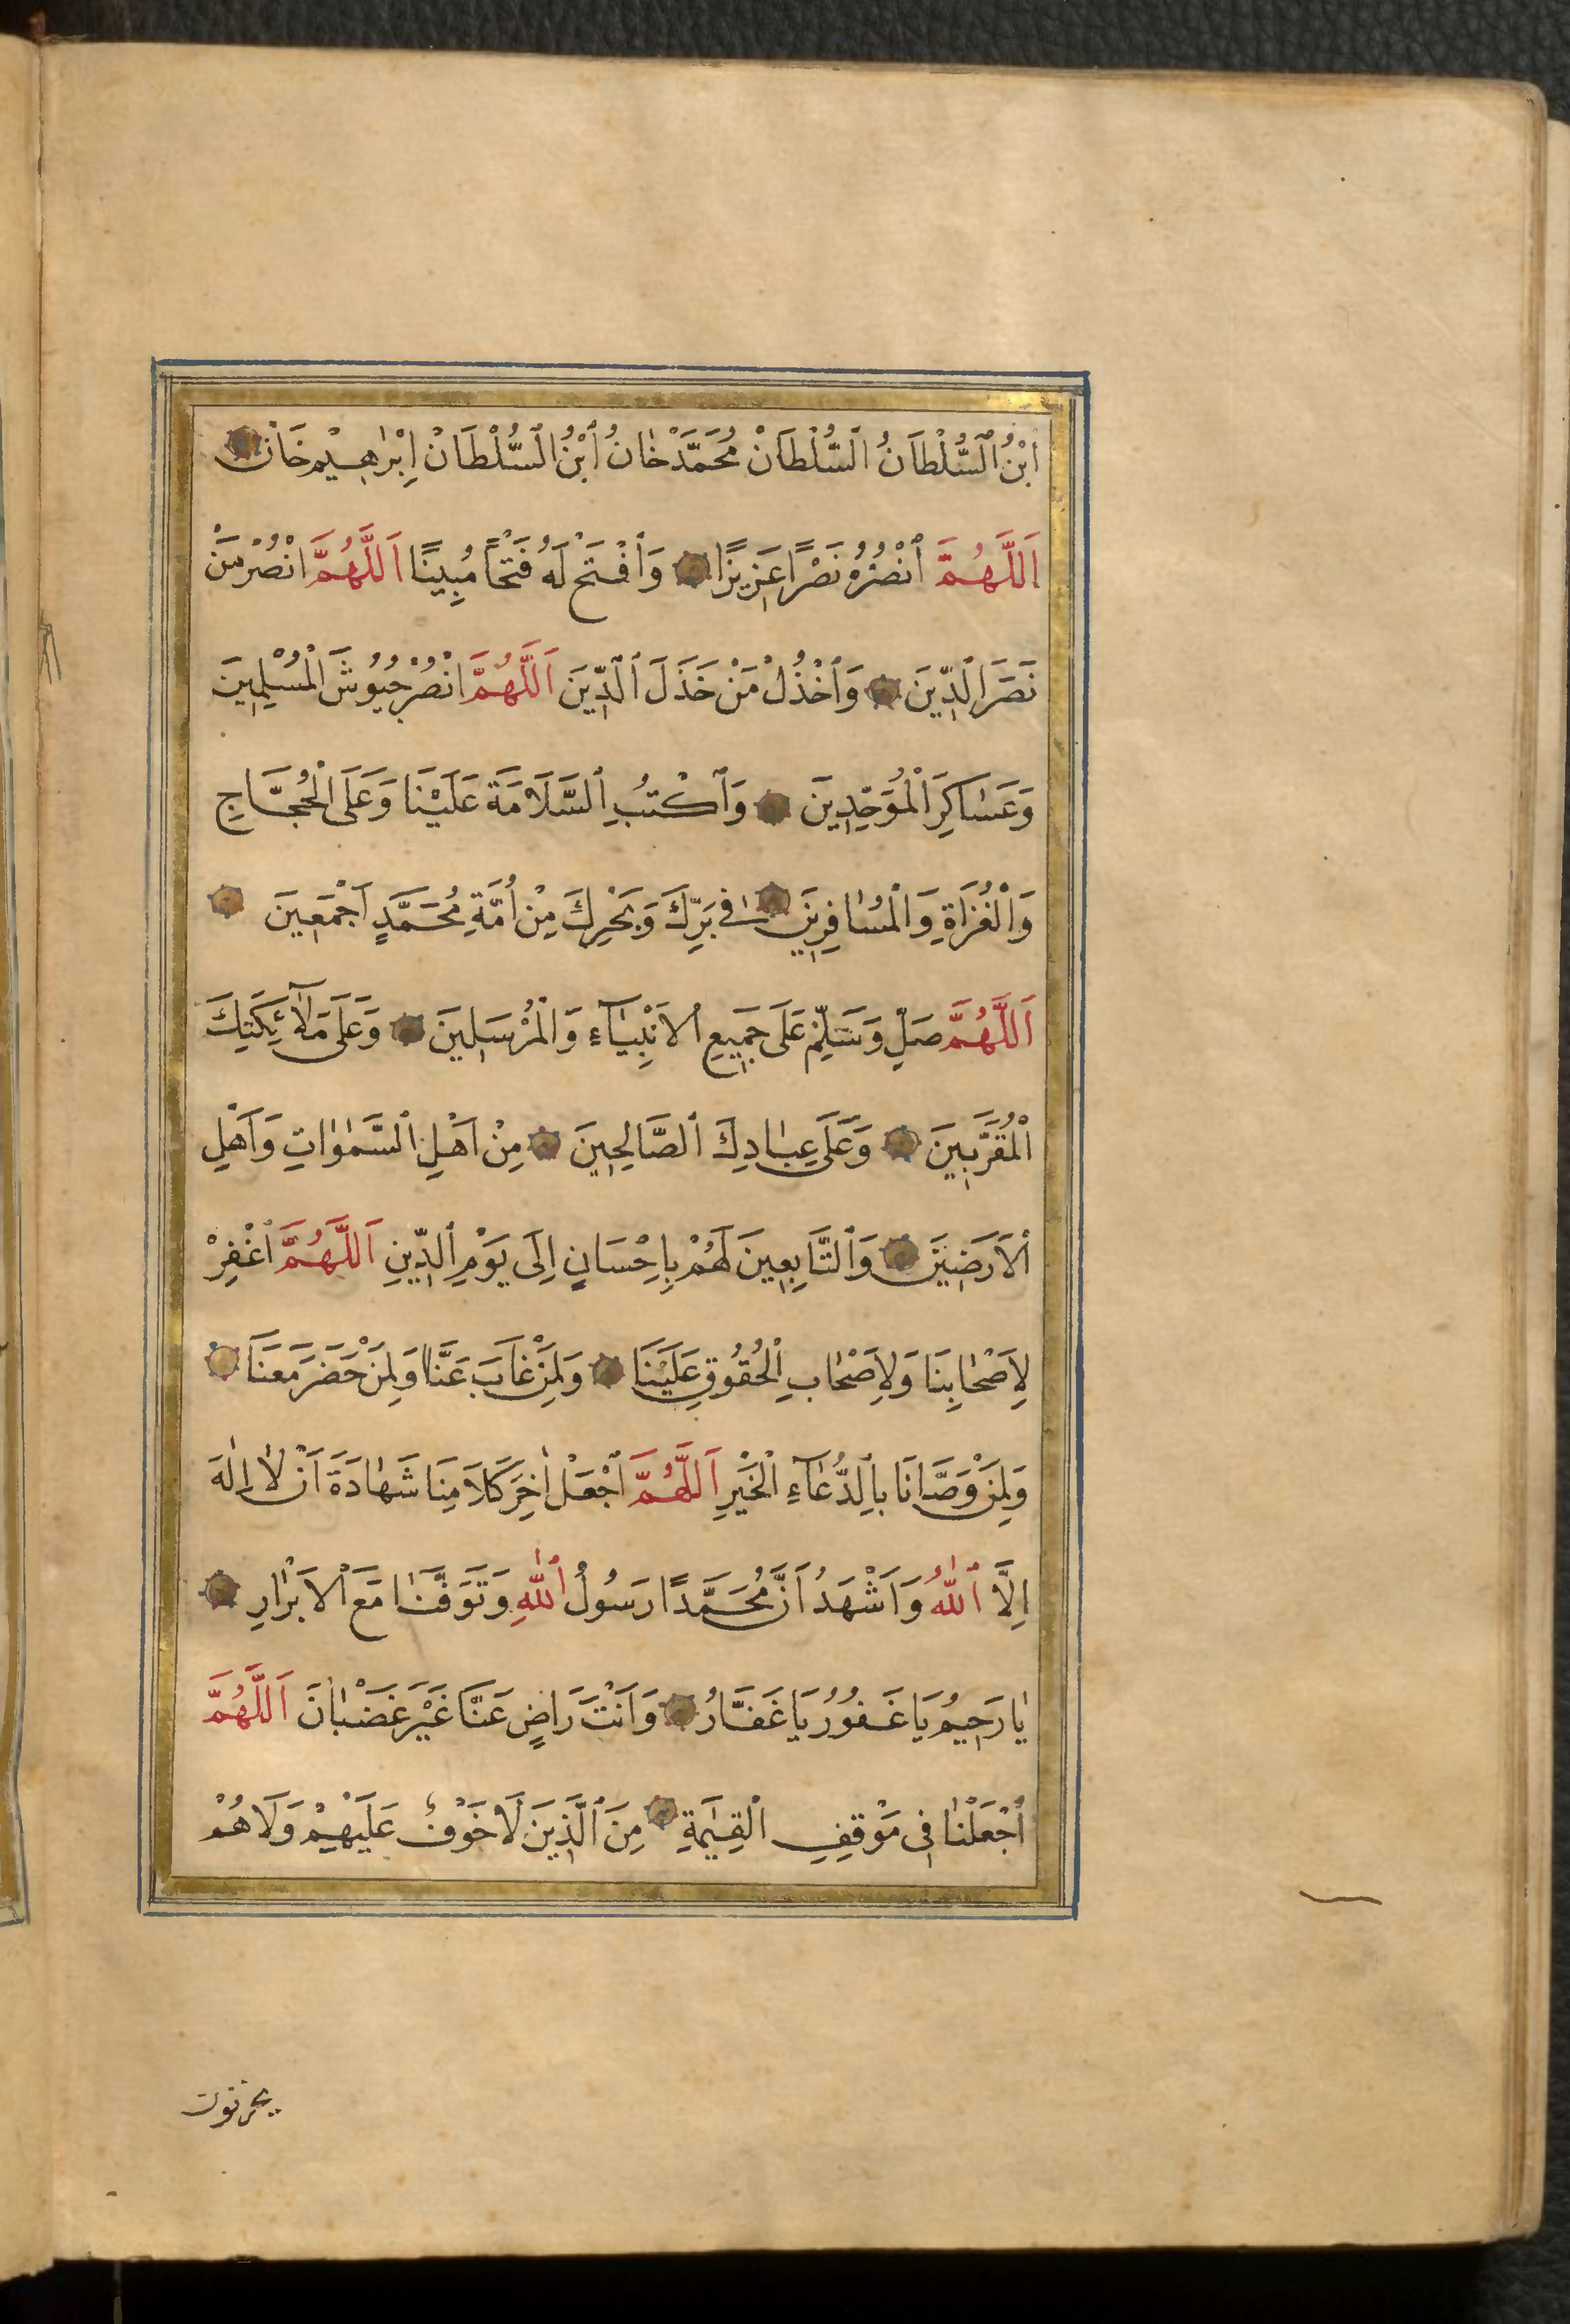 اَبْنُ ٱلسُّلْطَانُ ٱلسُّلْطَانْ مُحَمَّدْ خٰانُ ٱبْنُ ٱلسُّلْطَانْ اِبْرٰهِيْمْ خَانْ
اَللّٰهُمَّ ٱنْصُرْهُ نَصْرًا عَزِيزًا وَٱفْتَحْ لَهُ فَتْحًا مُبِينًا اَللّٰهُمَّ انْصُرْ مَنْ
نَصَرَ ٱلدِّينَ وَٱخْذُلْ مَنْ خَذَلَ ٱلدِّينَ اَللّٰهُمَّ انْصُرْ جُيُوشَ الْمُسْلِمِينَ
وَعَسَاكِرَ الْمُوَحِّدِينَ وَٱكْتُبِ ٱلسَّلَامَةَ عَلَيْنَا وَعَلَى الْحُجَّاجِ
وَالْغُزَاةِ وَالْمُسَافِرِينَ فِى بَرِّكَ وَبَحْرِكَ مِنْ اُمَّةِ مُحَمَّدٍ اَجْمَعِينَ
اَللّٰهُمَّ صَلِّ وَسَلِّمْ عَلَى جَمِيعِ ٱلاَنْبِيَآءِ وَالْمُرْسَلِينَ وَعَلَى مَلَآئِكَتِكَ
الْمُقَرَّبِينَ وَعَلَى عِبَادِكَ ٱلصَّالِحِينَ مِنْ اَهْلِ ٱلسَّمٰوَاتِ وَاَهْلِ
ٱلاَرَضِينَ وَٱلتَّابِعِينَ لَهُمْ بِاِحْسَانٍ اِلَى يَوْمِ ٱلدِّينِ اَللّٰهُمَّ ٱغْفِرْ
لِاَصْحَابِنَا وَلِاَصْحَابِ ٱلْحُقُوقِ عَلَيْنَا وَلِمَنْ غَابَ عَنَّا وَلِمَنْ حَضَرَ مَعَنَا
وَلِمَنْ وَصَّانَا بِٱلدُّعَآءِ الْخَيْرِ اَللّٰهُمَّ ٱجْعَلْ اٰخِرَ كَلَامِنَا شَهَادَةَ اَنْ لَا اِلٰهَ
اِلَّا ٱللّٰهُ وَاَشْهَدُ اَنَّ مُحَمَّدًا رَسُولُ ٱللّٰهِ وَتَوَفَّنَا مَعَ ٱلاَبْرَارِ
يَا رَحِيمُ يَا غَفُورُ يَا غَفَّارُ وَاَنْتَ رَاضٍ عَنَّا غَيْرَ غَضْبَانَ اَللّٰهُمَّ
ٱجْعَلْنَا فِى مَوْقِفِ الْقِيٰمَةِ مِنَ ٱلَّذِينَ لَا خَوْفٌ عَلَيْهِمْ وَلَا هُمْ
يحزنون